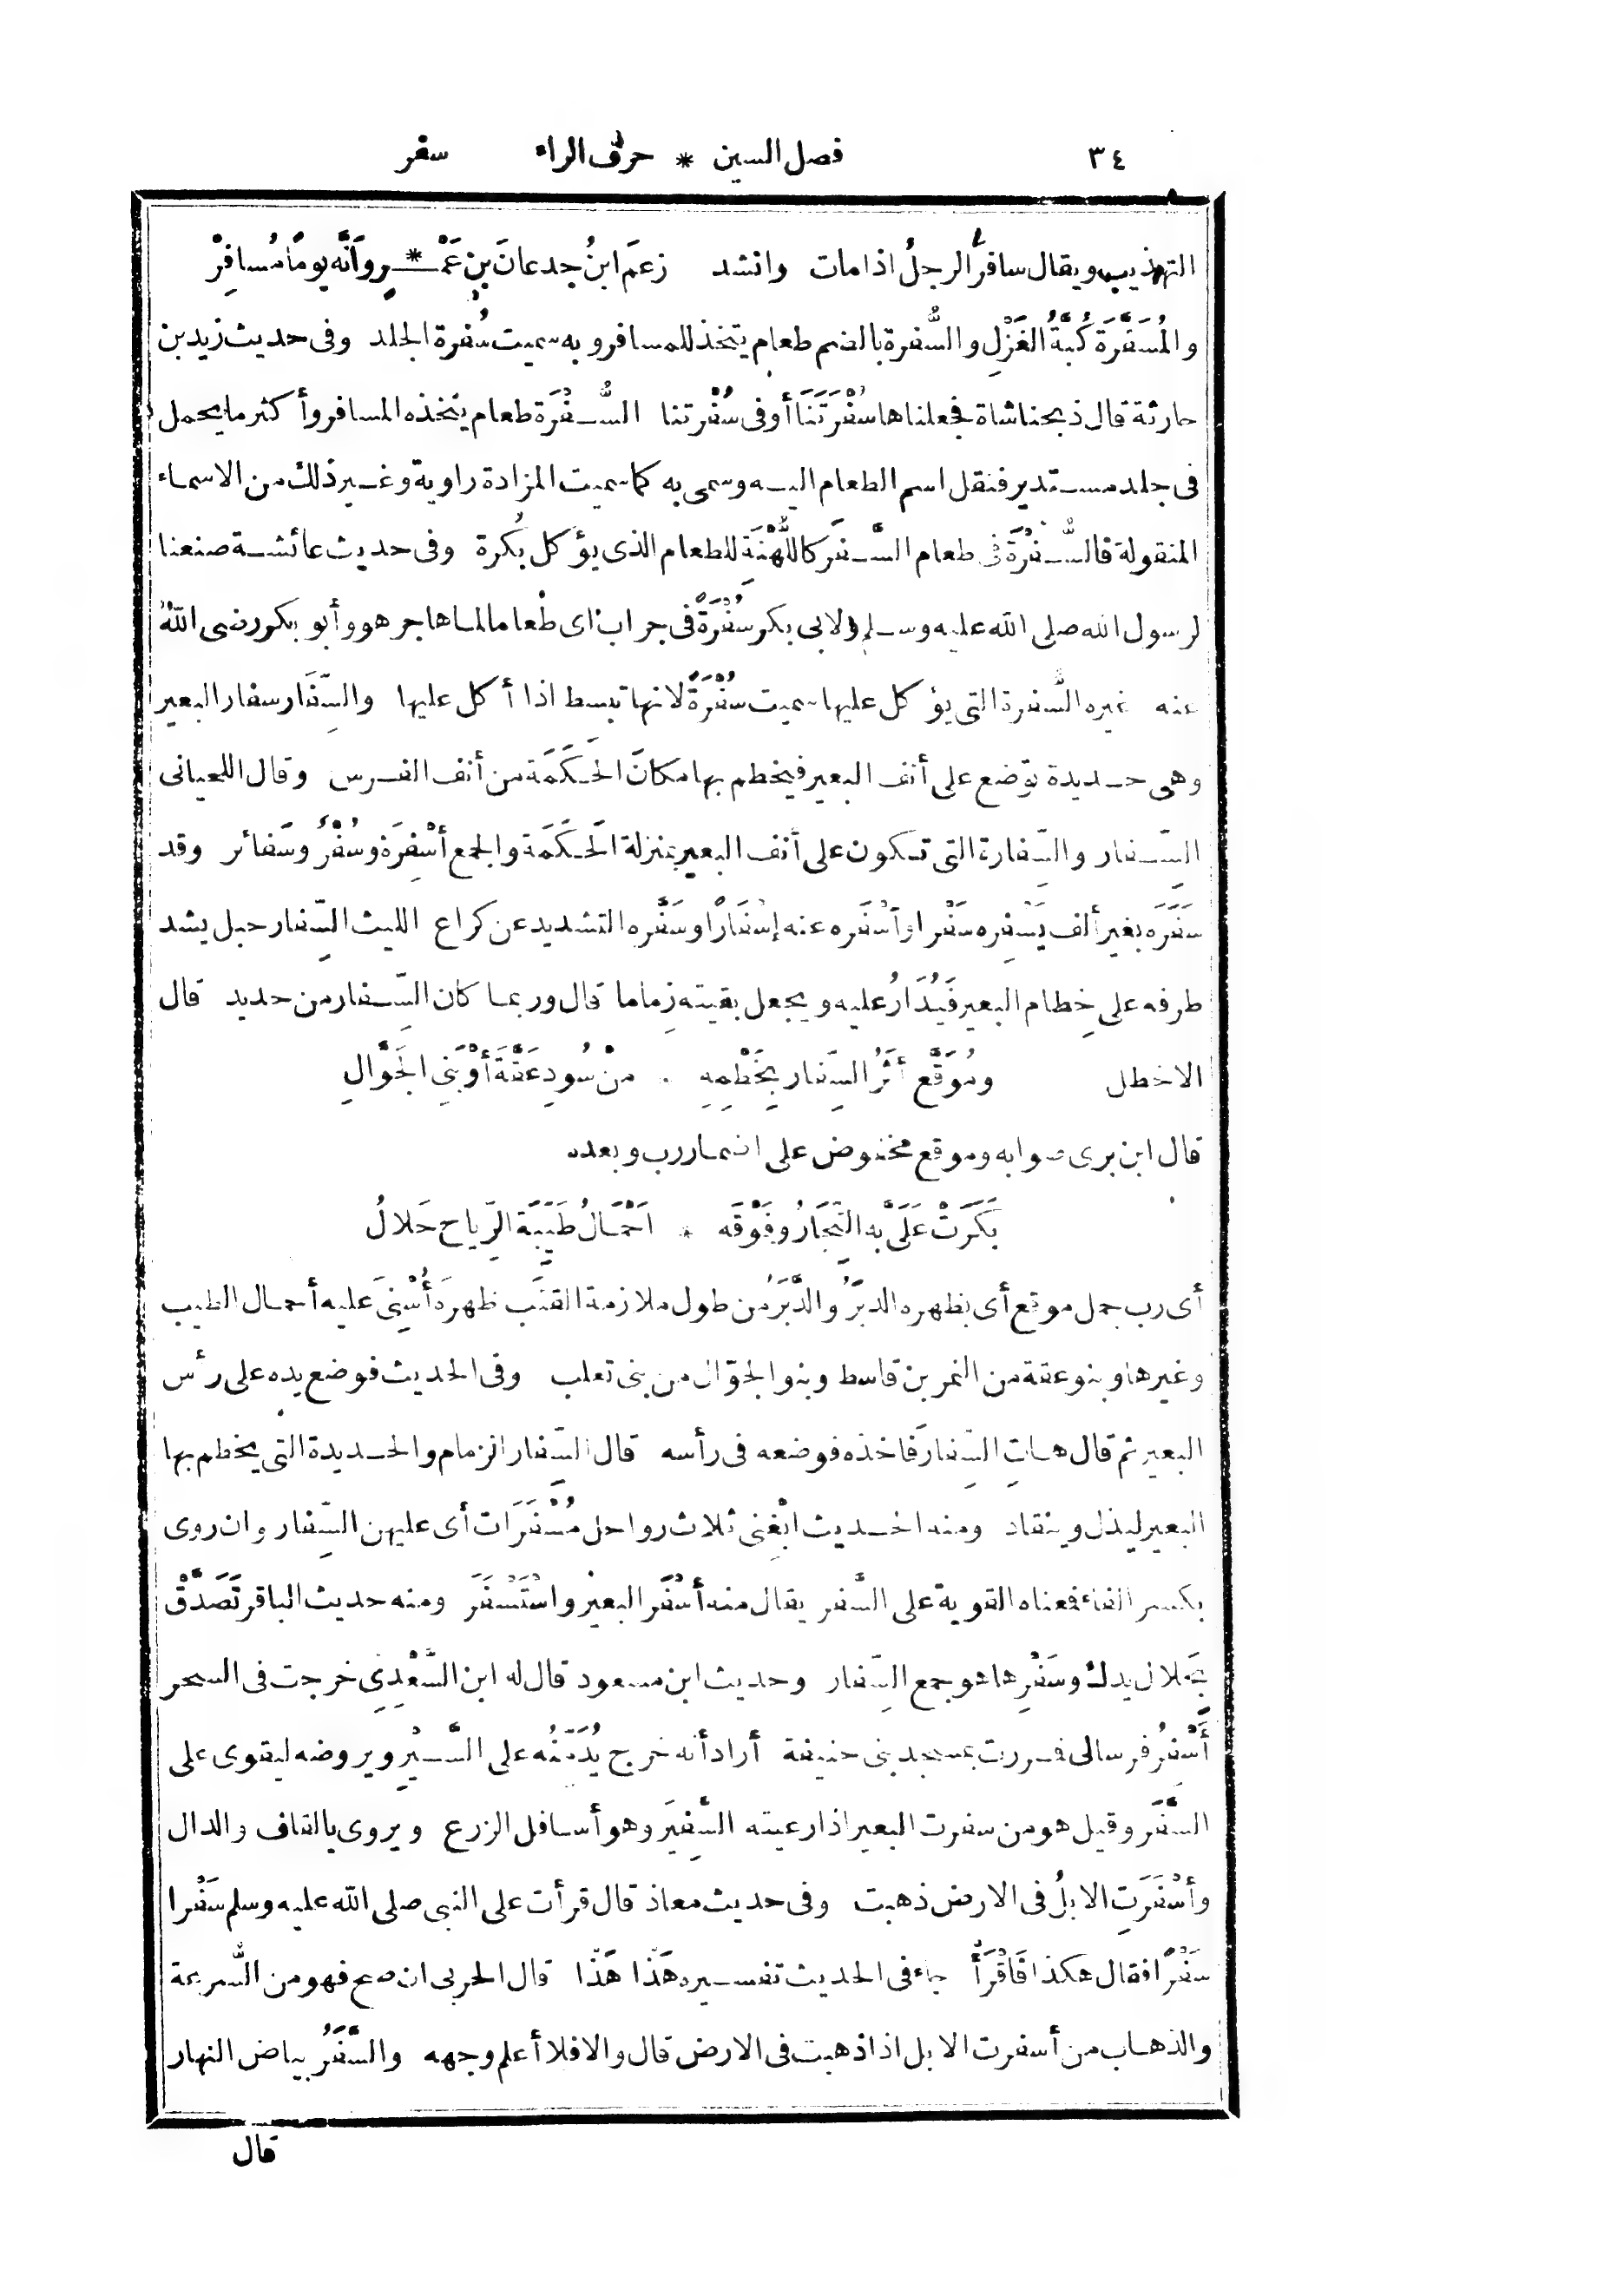 ٣٤ فصل السين * حرف الراء سفر
التهذيب ويقال سافرَ الرجلُ اذا مات وانشد زعمَ ابنُ جدعانَ بنِ عَمْـ * ـرٍو أَنَّه يومًا مُسافِرْ
والمُسَفَّرَة كُبَّةُ الغَزْلِ والسُّفرة بالضم طعام يتخذ للمسافر وبه سميت سُفرة الجلد وفى حديث زيد بن
حارثة قال ذبحنا شاة فجعلناها سُفْرَتَنَا أو فى سُفْرتنا السُّفْرَة طعام يتخذه المسافر وأكثر ما يحمل
فى جلد مستدير فنقل اسم الطعام اليه وسمى به كما سميت المزادة راوية وغير ذلك من الاسماء
المنقولة فالسُّفْرَة فى طعام السَّفَر كاللُّهْنَة للطعام الذى يؤكل بُكرة وفى حديث عائشة صنعنا
لرسول الله صلى الله عليه وسلم ولابى بكر سُفْرَةً فى جراب اى طعاما لما هاجر هو وأبو بكر رضى اللهُ
عنه غيره السُّفرة التى يؤكل عليها سميت سُفْرَةً لانها تبسط اذا أكل عليها والسِّفَار سفار البعير
وهى حديدة توضع على أنف البعير فيخطم بها مكانَ الحَكَمَة من أنف الفرس وقال اللحيانى
السِّفار والسِّفارة التى تكون على أنف البعير بمنزلة الحَكَمَة والجمع أَسْفِرَة وسُفْرٌ وسَفائر وقد
سَفَرَه بغير ألف يَسْفِره سَفْرا وأَسْفَره عنه إِسْفَارًا وسَفَّره التشديد عن كراع الليث السِّفار حبل يشد
طرفه على خِطام البعير فَيُدَارُ عليه ويجعل بقيته زِماما قال وربما كان السِّفار من حديد قال
الاخطل ومُوَقَّع أَثَرُ السِّفار بِخَطْمِهِ . مِنْ سُودِ عَقَّةَ أَوْ بَنِى الجَوَّالِ
قال ابن برى صوابه وموقع مخفوض على اضمار رب وبعده
بَكَرَتْ عَلَىَّ به التِّجَارُ وفَوْقَه * اَحْمَالُ طَيِّبَة الرِّياح حَلالُ
أى رب جمل موقع أى بظهره الدبَرُ والدَّبَرُ من طول ملازمة القتَب ظهرَه أُسْنِىَ عليه أحمال الطيب
وغيرها وبنو عقة من النمر بن قاسط وبنو الجوّال من بنى تغلب وفى الحديث فوضع يده على رأس
البعير ثم قال هاتِ السِّفارَ فاخذه فوضعه فى رأسه قال السِّفار الزمام والحديدة التى يخطم بها
البعير ليذل وينقاد ومنه الحديث ابْغِنى ثلاث رواحل مُسْفَرَات أى عليهن السِّفار وان روى
بكسر الفاء فمعناه القوية على السَّفر يقال منه أَسْفَر البعير واسْتَسْفَرَ ومنه حديث الباقر تَصَدَّقْ
بِجَلال يدك وسَفْرِها هو جمع السِّفار وحديث ابن مسعود قال له ابن السَّعْدِىِّ خرجت فى السحر
أَسْفِرُ فرسا لى فمررت بمسجد بنى حنيفة أراد أنه خرج يُدَمِّنُه على السَّيْرِ ويروضه ليقوى على
السَّفَر وقيل هو من سفرت البعير اذا رعيته السَّفِيرَ وهو أسافل الزرع ويروى بالقاف والدال
وأَسْفَرَتِ الابلُ فى الارض ذهبت وفى حديث معاذ قال قرأت على النبى صلى الله عليه وسلم سَفْرا
سَفْرًا فقال هكذا فَاقْرَأْ جاء فى الحديث تفسيره هَذًّا هَذًّا قال الحربى ان صح فهو من السُّرعة
والذهاب من أسفرت الابل اذا ذهبت فى الارض قال والا فلا أعلم وجهه والسَّفَرُ بياض النهار
قال